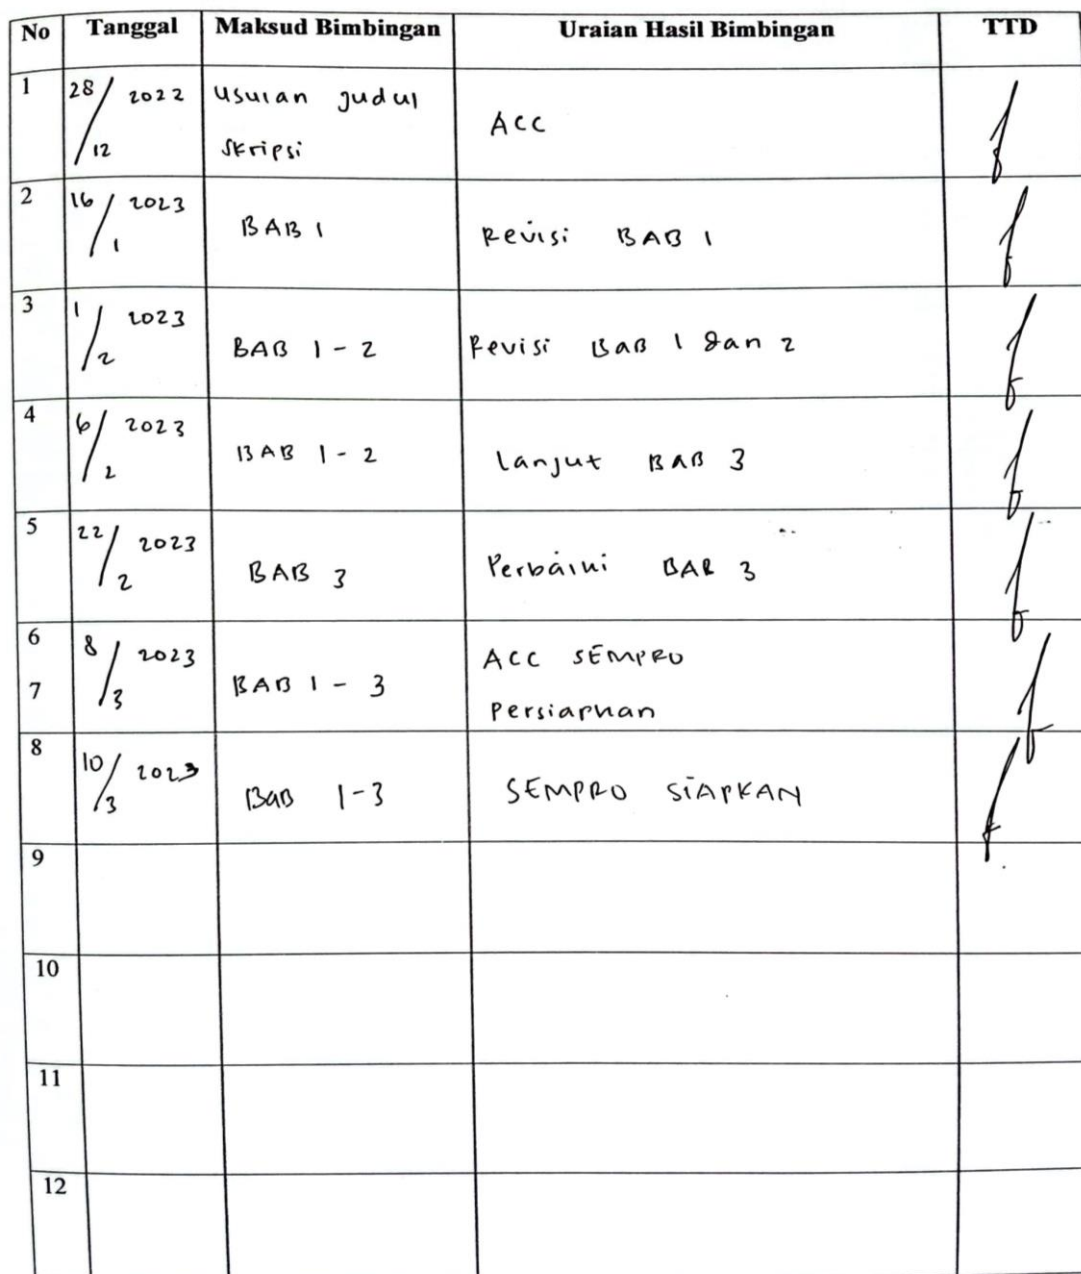 No Tanggal Maksud Bimbingan Uraian Hasil Bimbingan TTD
1 28/12 2022 Usulan Judul Skripsi ACC
2 16/1 2023 BAB 1 Revisi BAB 1
3 1/2 2023 BAB 1-2 Revisi BAB 1 dan 2
4 6/2 2023 BAB 1-2 Lanjut BAB 3
5 22/2 2023 BAB 3 Perbaiki BAB 3
6 8/3 2023 BAB 1-3 ACC SEMPRO
7 Persiapkan
8 10/3 2023 BAB 1-3 SEMPRO SIAPKAN
9
10
11
12